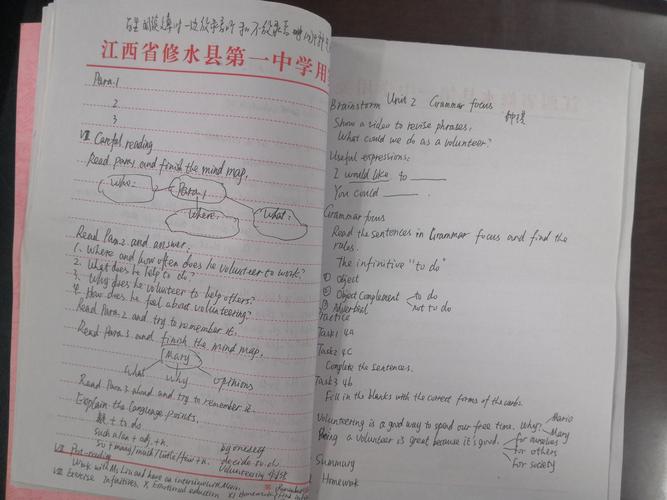 江西省修水县第一中学用
Para.1
2
3
VI Careful reading
Read para.1 and finish the mind map.
who: Para.1
where: what:
Read Para.2 and answer.
1. Where and how often does he volunteer to work?
2. What does he help to do?
3. Why does he volunteer to help others?
4. How does he feel about volunteering?
Read Para.2 and try to remember it.
Read Para.3 and finish the mind map.
Mary
what why opinions
Read Para.3 aloud and try to remember it.
Explain the language points.
such a/an + adj. + n.
so + many/much/little/few + n.
by oneself
decide to do
volunteering
VII Post-reading
Work with Ms Liu and have an interview with Mario
Exercise Infinitives. X Emotional education XI Homework
Brainstorm Unit 2 Grammar focus
Show a video to revise phrases.
What could we do as a volunteer?
Useful expressions:
I would like to ____
You could ____
Grammar focus
Read the sentences in Grammar focus and find the
rules.
The infinitive "to do"
① Object
② Object Complement to do
③ Adverbial not to do
Practice
Task1 4A
Task2 4C
Complete the sentences.
Task3 4b
Fill in the blanks with the correct forms of the verbs.
Volunteering is a good way to spend our free time. Why? Mario
Mary
Being a volunteer is great because it's good. for ourselves
for others
for society
Summary
Homework